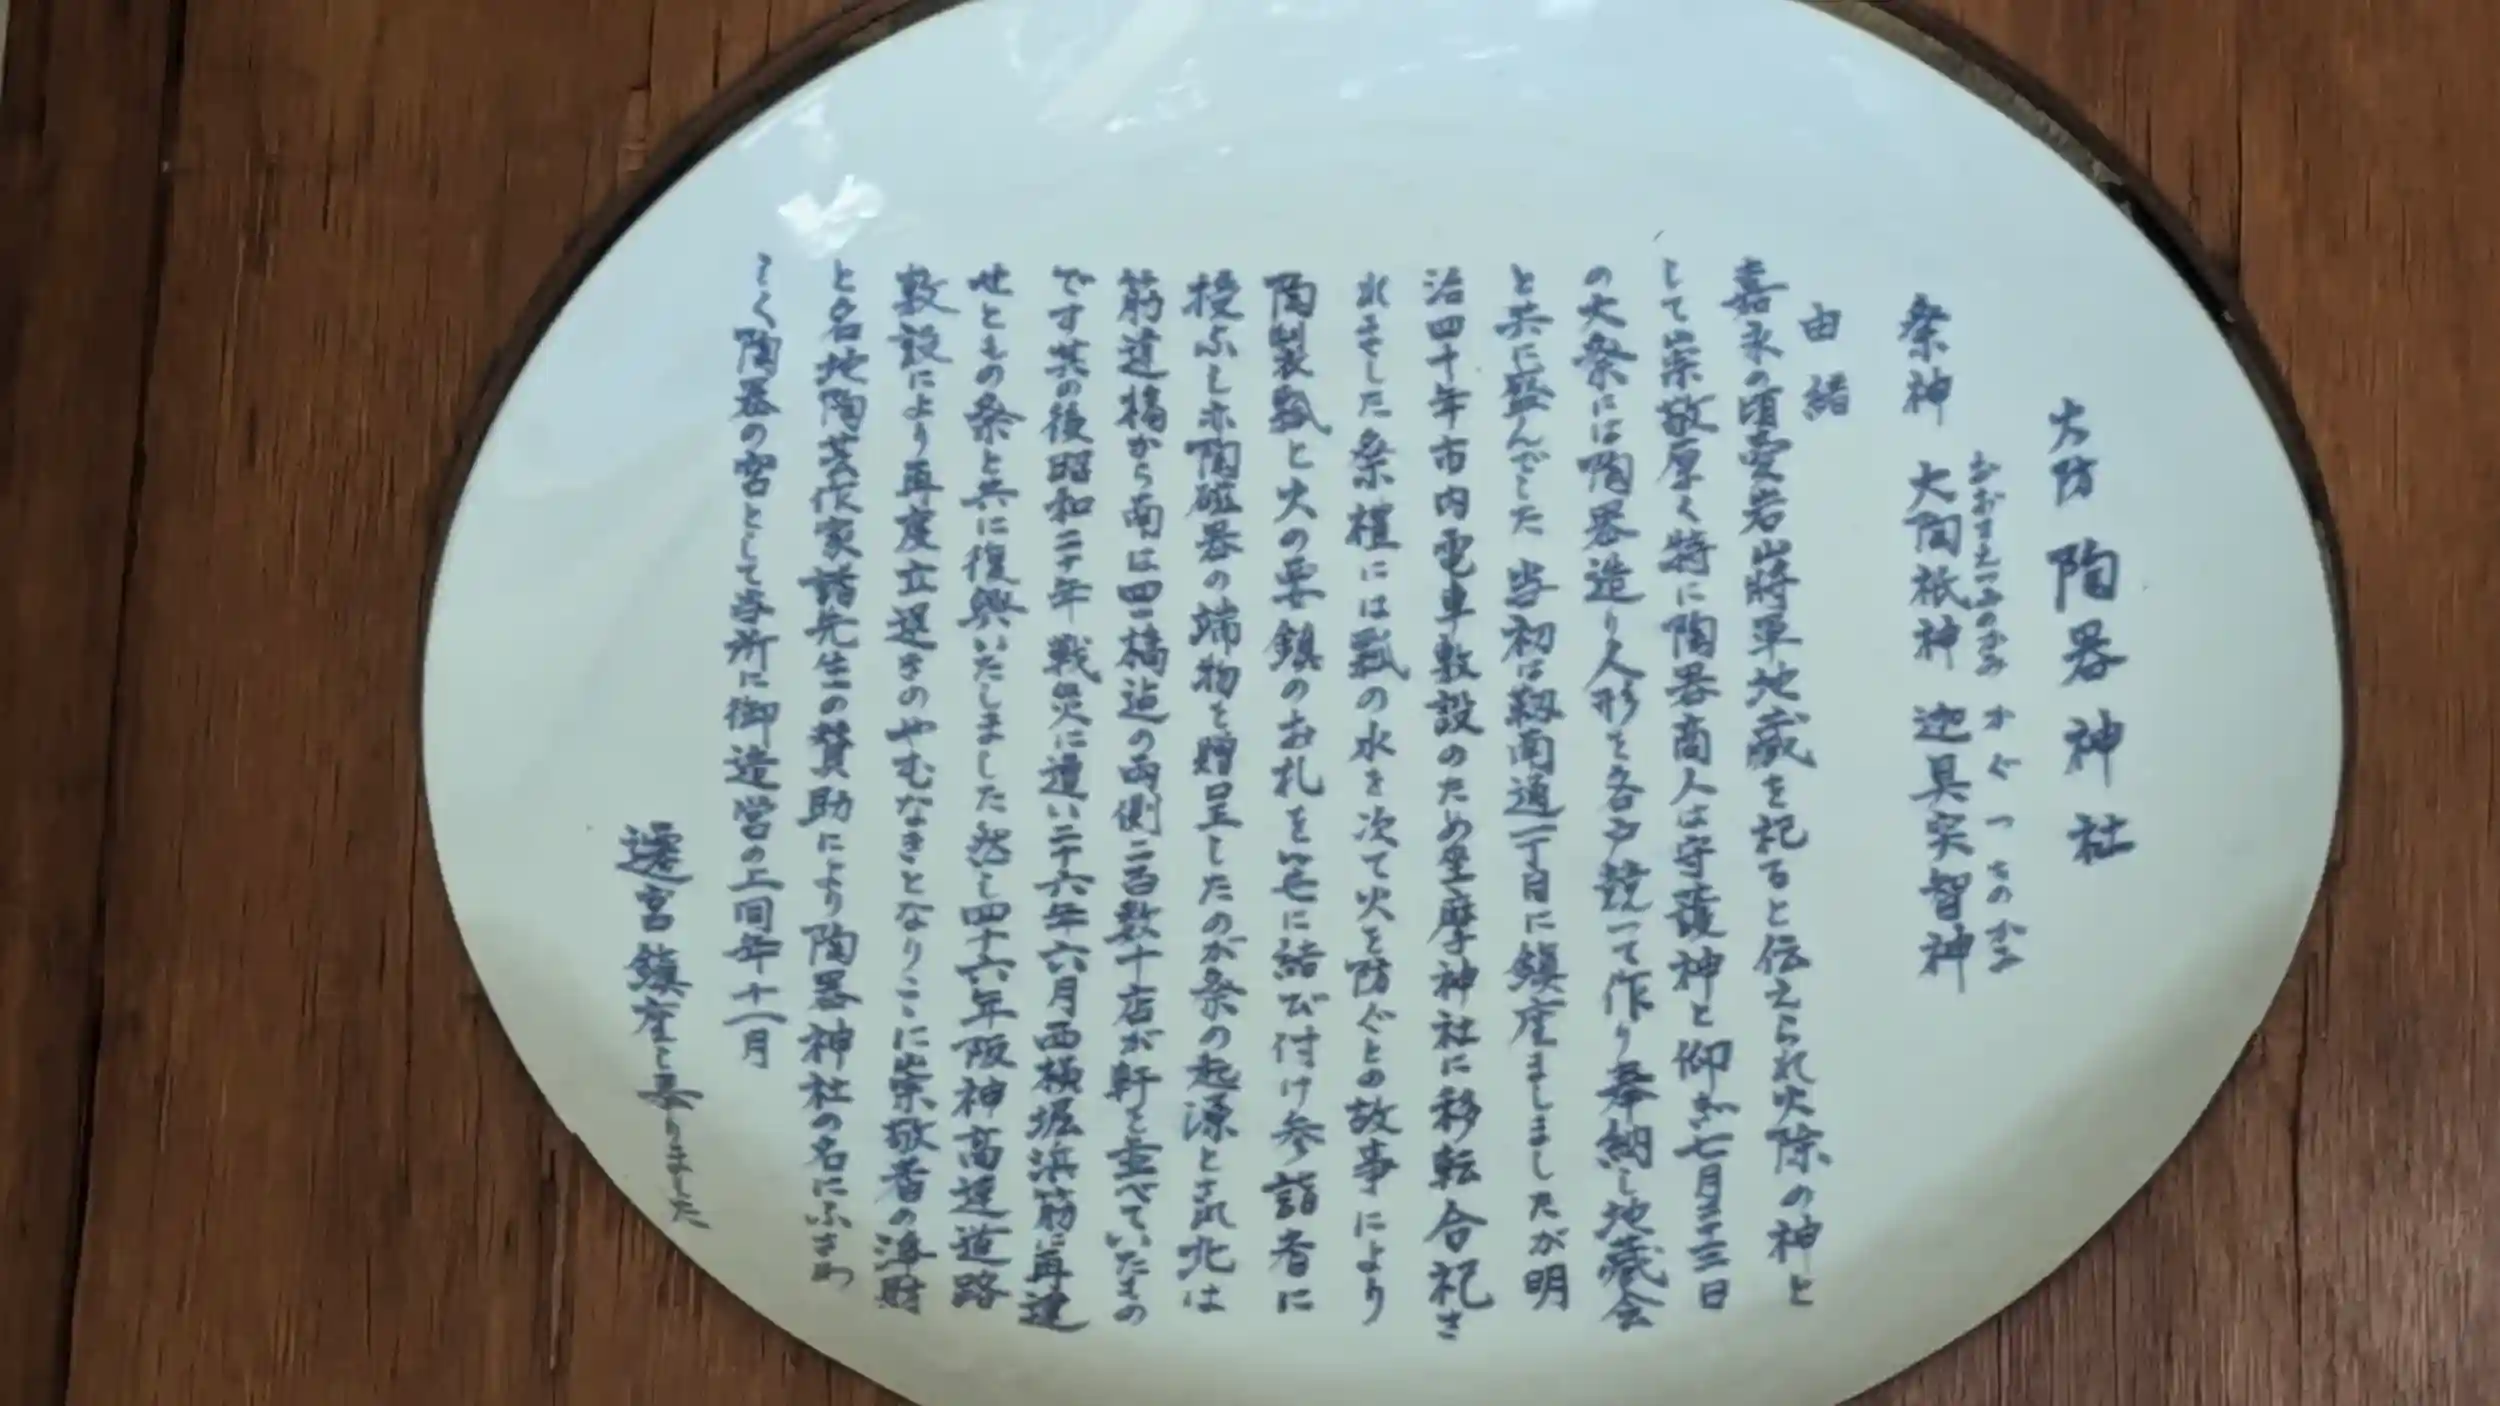 火防 陶器神社
おおすえつみのかみ かぐつちのかみ
祭神 大陶祇神 迦具突智神
由緒
嘉永の頃愛宕山将軍地蔵を祀ると伝えられ火除の神と
して崇敬厚く特に陶器商人は守護神と仰ぎ七月二十三日
の大祭には陶器造り人形を各戸競って作り奉納し地蔵会
と共に盛んでした 当初は靱南通一丁目に鎮座ましましたが明
治四十年市内電車敷設のため坐摩神社に移転合祀さ
れました祭礼には瓢の水を次て火を防ぐとの故事により
陶製瓢と火の要鎮のお札を笹に結び付け参詣者に
授ふし亦陶磁器の端物を贈呈したのが祭の起源とされ北は
筋違橋から南は四ツ橋迠の両側二百数十店が軒を並べていたもの
です其の後昭和二十年戦災に遭い二十六年六月西横堀浜筋に再建
せともの祭と共に復興いたしました然し四十六年阪神高速道路
敷設により再度立退きのやむなきとなりここに崇敬者の浄財
と名地陶芸作家諸先生の賛助により陶器神社の名にふさわ
しく陶器の宮として当所に御造営の上同年十一月
遷宮鎮座と奉りました